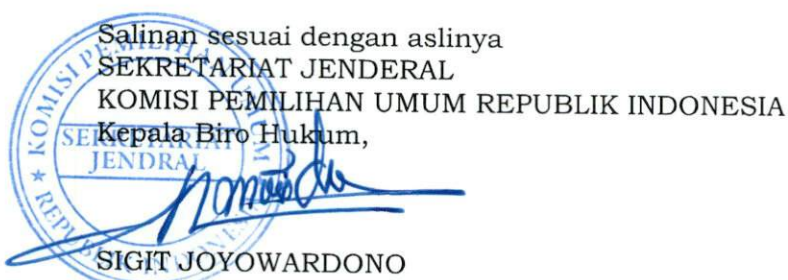 Salinan sesuai dengan aslinya
SEKRETARIAT JENDERAL
KOMISI PEMILIHAN UMUM REPUBLIK INDONESIA
Kepala Biro Hukum,
KOMISI PEMILIHAN UMUM
SEKRETARIAT
JENDRAL
REPUBLIK INDONESIA
SIGIT JOYOWARDONO